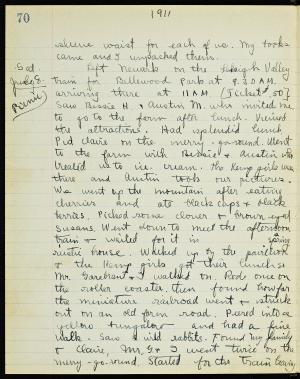 70
1911
where waist for each of us. My books
came and I unpacked them.
Sat.
July 8.
Picnic
Left Newark on the Lehigh Valley
train for Bellewood Park at 9.30 A.M.
arriving there at 11 A.M. (Ticket .50)
Saw Bessie H & Austin M. who invited me
to go to the farm after lunch. Viewed
the attractions. Had splendid lunch
Put Claire on the merry-go-round. Went
to the farm with Bessie & Austin who
treated us to ice-cream. The Kemp girls were
there and Austin took our pictures.
We went up the mountain after eating
cherries and ate blackcaps & black
berries. Picked some clover & brown eyed
susans. Went down to meet the afternoon
train & waited for it in spring
rustic house. Walked up to the pavilion
& the Kemp girls got their lunch.
Mr. & I walked on. Rode once on
the roller coaster then found how far
the miniature railroad went & struck
out on an old farm road. Peered into a
yellow bungalow and had a fine
walk. Saw 2 wild rabbits. Found my family
& Claire, Mr. G & I went twice on the
merry-go-round. Started for the train leaving